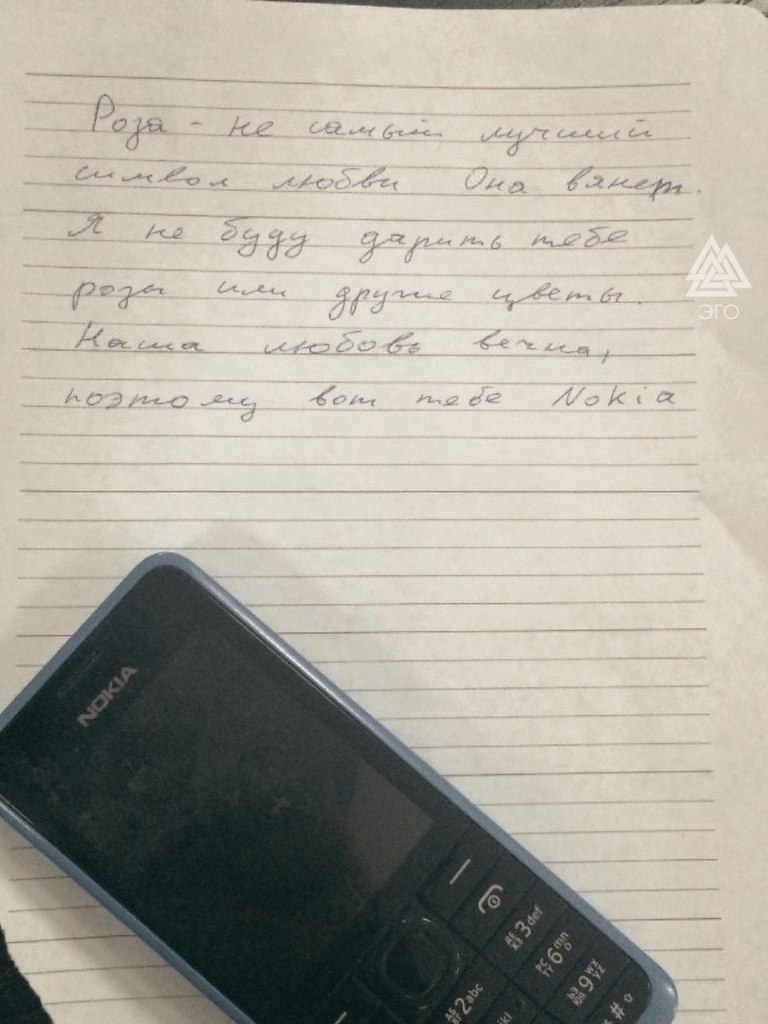 Роза - не самый лучший
символ любви. Она вянет.
Я не буду дарить тебе
розы или другие цветы.
Наша любовь вечна,
поэтому вот тебе Nokia
ЭГО
NOKIA
3def
6mno
9wxyz
2abc
#